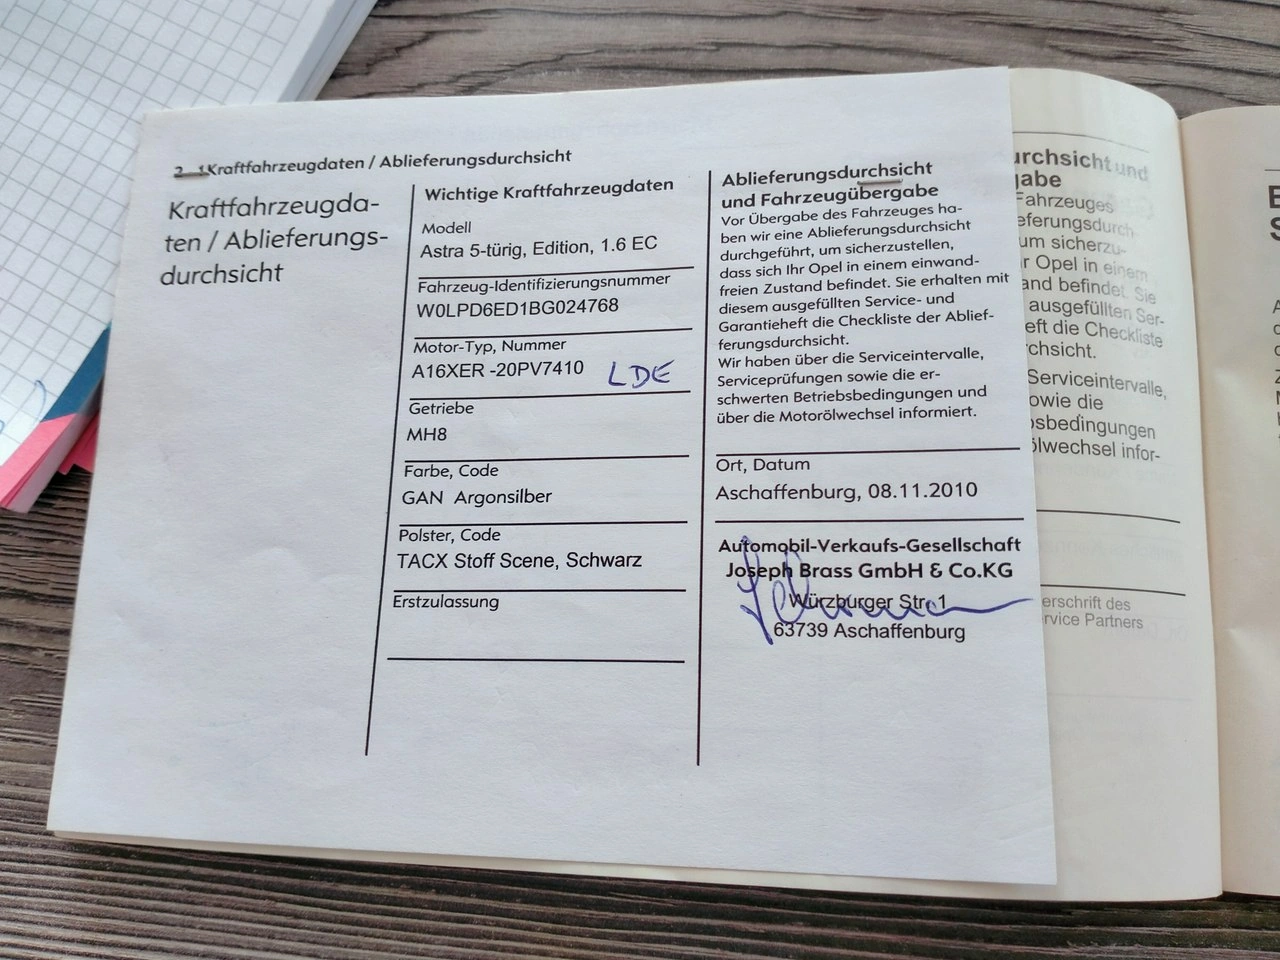 2 1Kraftfahrzeugdaten / Ablieferungsdurchsicht
Kraftfahrzeugda-
ten / Ablieferungs-
durchsicht
Wichtige Kraftfahrzeugdaten
Modell
Astra 5-türig, Edition, 1.6 EC
Fahrzeug-Identifizierungsnummer
W0LPD6ED1BG024768
Motor-Typ, Nummer
A16XER -20PV7410 LDE
Getriebe
MH8
Farbe, Code
GAN Argonsilber
Polster, Code
TACX Stoff Scene, Schwarz
Erstzulassung
Ablieferungsdurchsicht
und Fahrzeugübergabe
Vor Übergabe des Fahrzeuges ha-
ben wir eine Ablieferungsdurchsicht
durchgeführt, um sicherzustellen,
dass sich Ihr Opel in einem einwand-
freien Zustand befindet. Sie erhalten mit
diesem ausgefüllten Service- und
Garantieheft die Checkliste der Ablief-
ferungsdurchsicht.
Wir haben über die Serviceintervalle,
Serviceprüfungen sowie die er-
schwerten Betriebsbedingungen und
über die Motorölwechsel informiert.
Ort, Datum
Aschaffenburg, 08.11.2010
Automobil-Verkaufs-Gesellschaft
Joseph Brass GmbH & Co.KG
Würzburger Str. 1
63739 Aschaffenburg
urchsicht und
gabe
Fahrzeuges
eferungsdurch-
um sicherzu-
r Opel in einem
and befindet. Sie
ausgefüllten Ser-
eft die Checkliste
rchsicht.
Serviceintervalle,
owie die
sbedingungen
ölwechsel infor-
erschrift des
rvice Partners